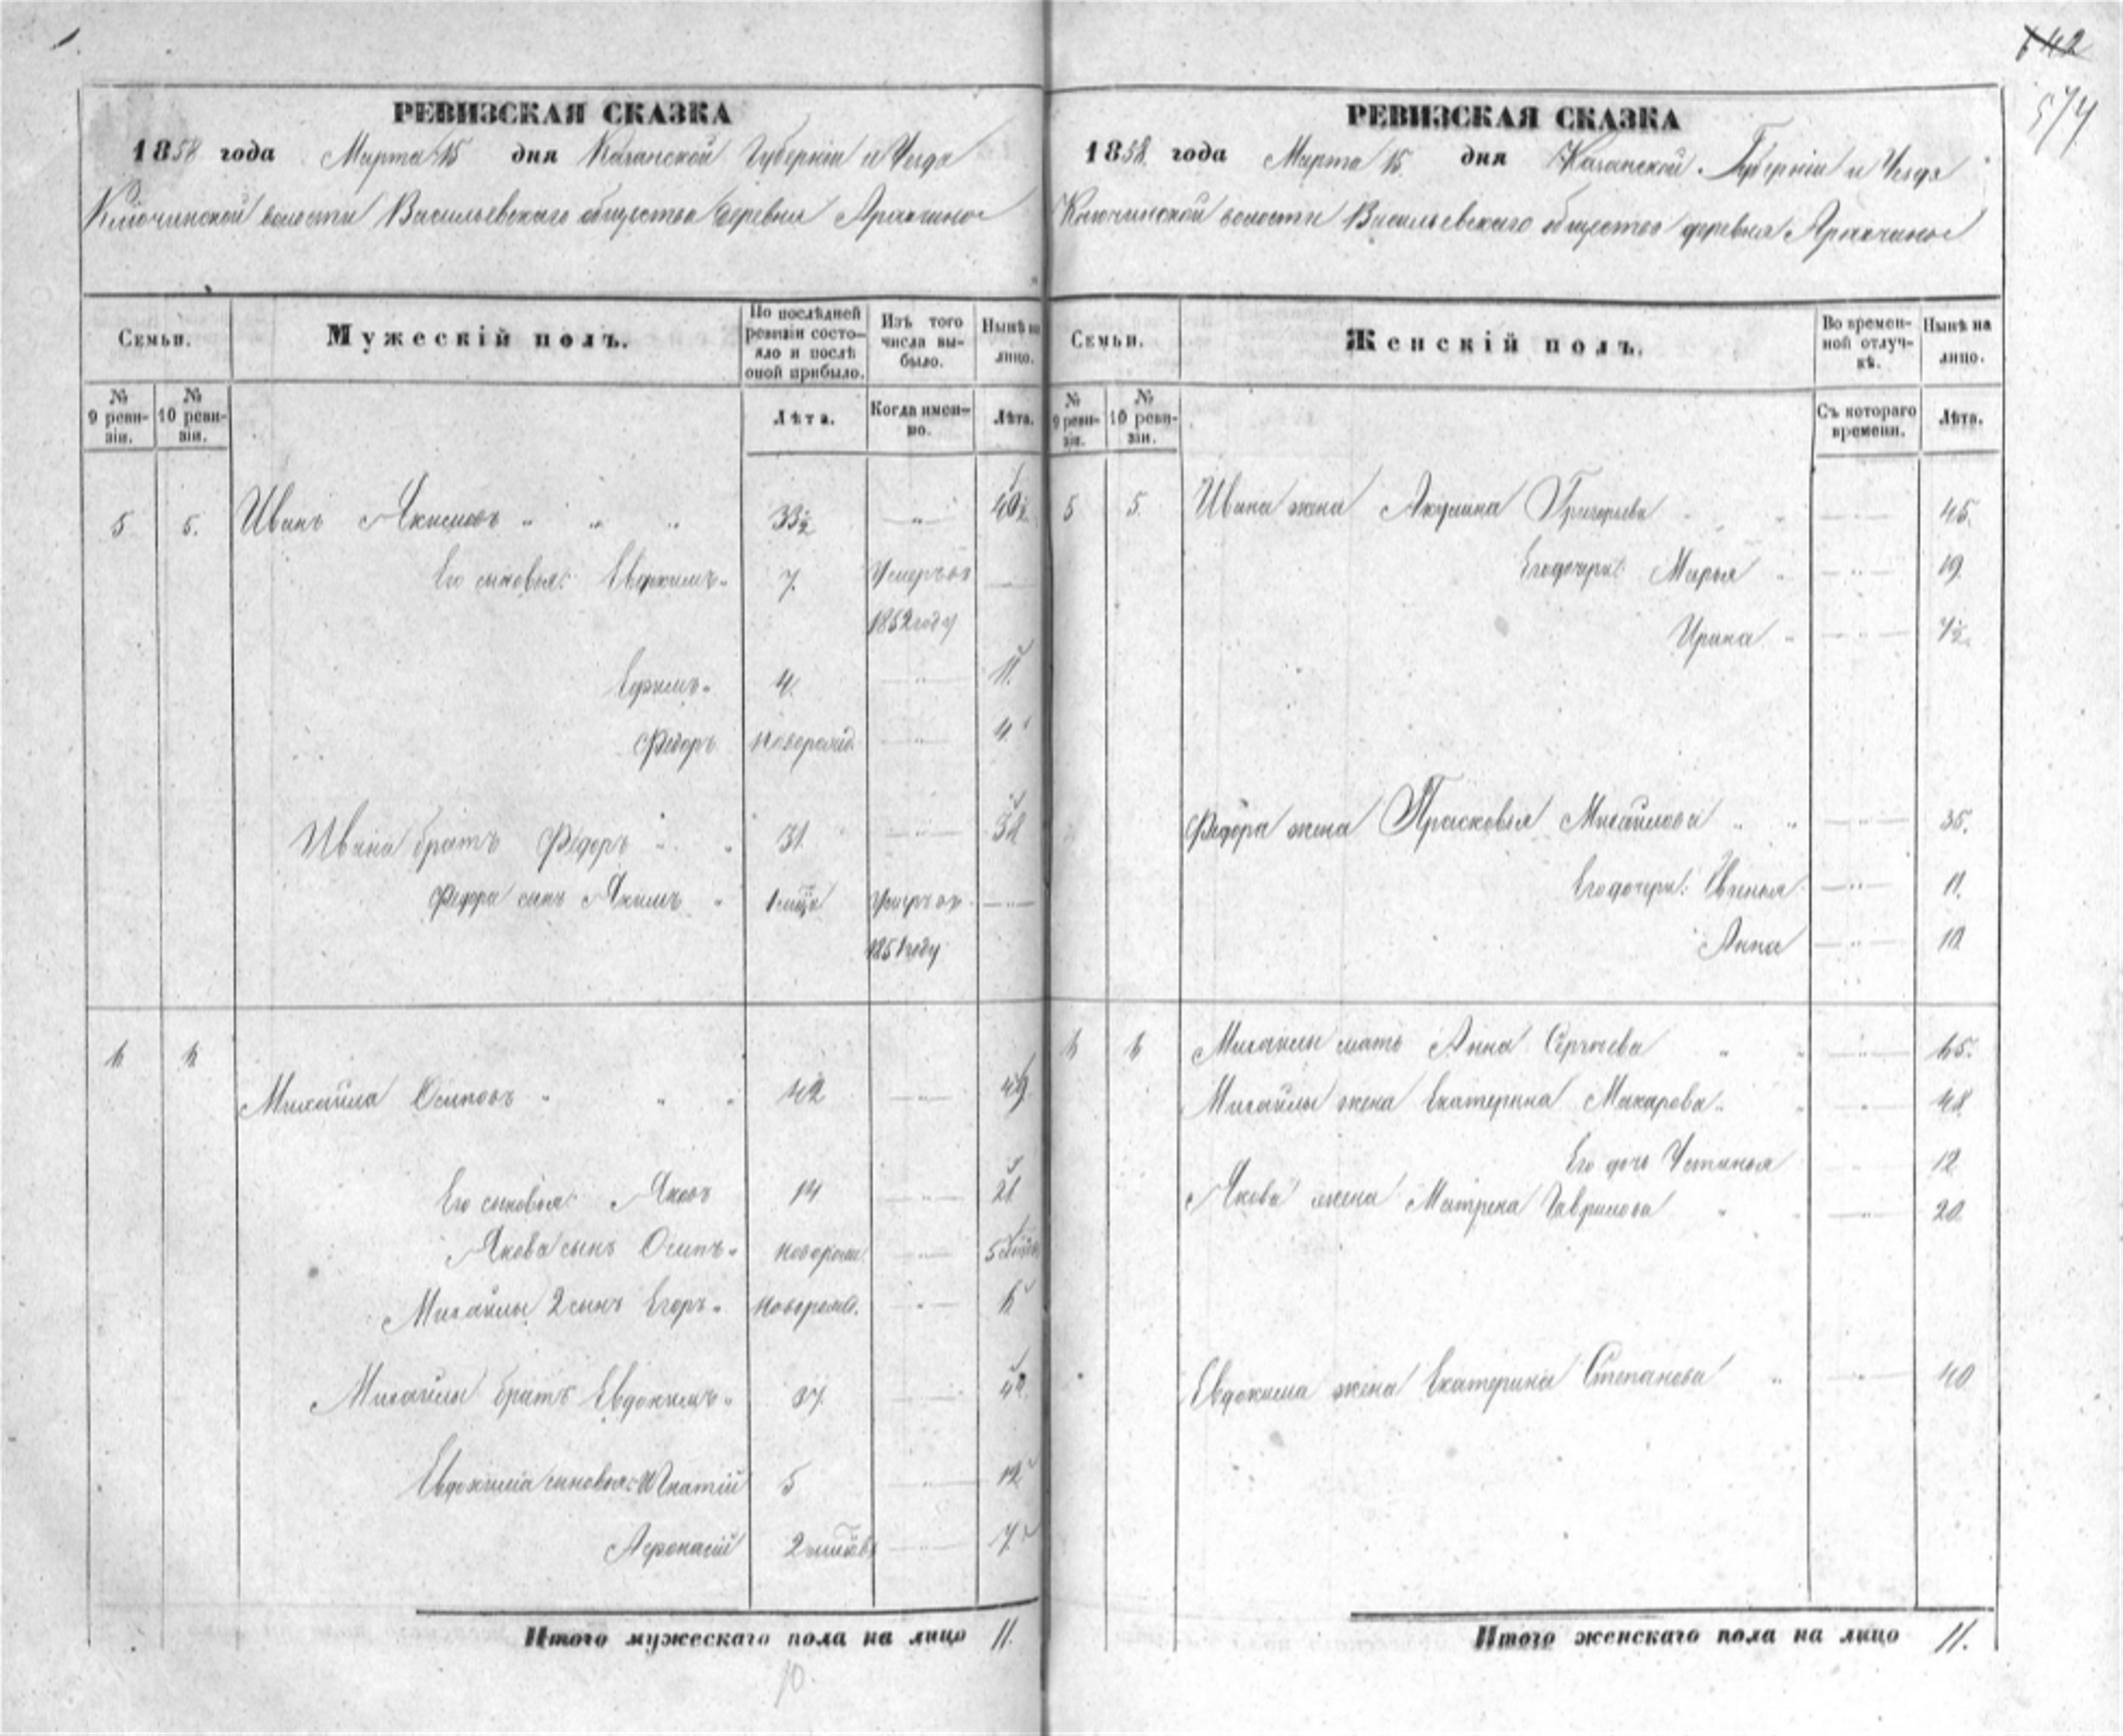 642
574
РЕВИЗСКАЯ СКАЗКА
1858 года Марта 15 дня Казанской Губерніи и Уезда
Ключинской волости Васильевскаго общества деревни Аракчино
Семьи.
Мужескій полъ.
По послѣдней ревизіи состояло и послѣ оной прибыло.
Изъ того числа выбыло.
Нынѣ на лицо.
№ 9 ревизіи.
№ 10 ревизіи.
Лѣта.
Когда именно.
Лѣта.
5 5. Иванъ Якимовъ 33½ „ 40½
Его сыновья: Евдокимъ 7. Умеръ въ
1852 году
Ефимъ 4. „ 11.
Федоръ новорожд. „ 4
Ивана братъ Федоръ 31. „ 38
Федора сынъ Якимъ 1 мѣс. Умеръ въ
1851 году
6 6
Михайла Осиповъ 42 „ 49
Его сыновья: Яковъ 14 „ 21
Якова сынъ Осипъ новорожд. „ 5 мѣсяц.
Михайлы 2 сынъ Егоръ новорожд. „ 6
Михайлы братъ Евдокимъ 37. „
Евдокима сыновья: Игнатій 5 „ 12
Афонасій 2 мѣсяц. „ 7
Итого мужескаго пола на лицо 11.
10.
РЕВИЗСКАЯ СКАЗКА
1858. года Марта 15. дня Казанской Губерніи и Уезда
Ключинской волости Васильевскаго общества деревня Аракчино
Семьи.
Женскій полъ.
Во временной отлучкѣ.
Нынѣ на лицо.
№ 9 ревизіи.
№ 10 ревизіи.
Съ котораго времени.
Лѣта.
5 5. Ивана жена Акулина Григорьева „ 45.
Его дочери: Марья „ 19.
Ирина „ 7½.
Федора жена Прасковья Михайлова „ 35.
Его дочери: Евгенья „ 11.
Анна „ 10
6 6 Михайлы мать Анна Сергѣева „ 65.
Михайлы жена Екатерина Макарова „ 48.
Его дочь Устинья „ 12
Якова жена Матрена Гаврилова „ 20.
Евдокима жена Екатерина Степанова „ 40
Итого женскаго пола на лицо 11.